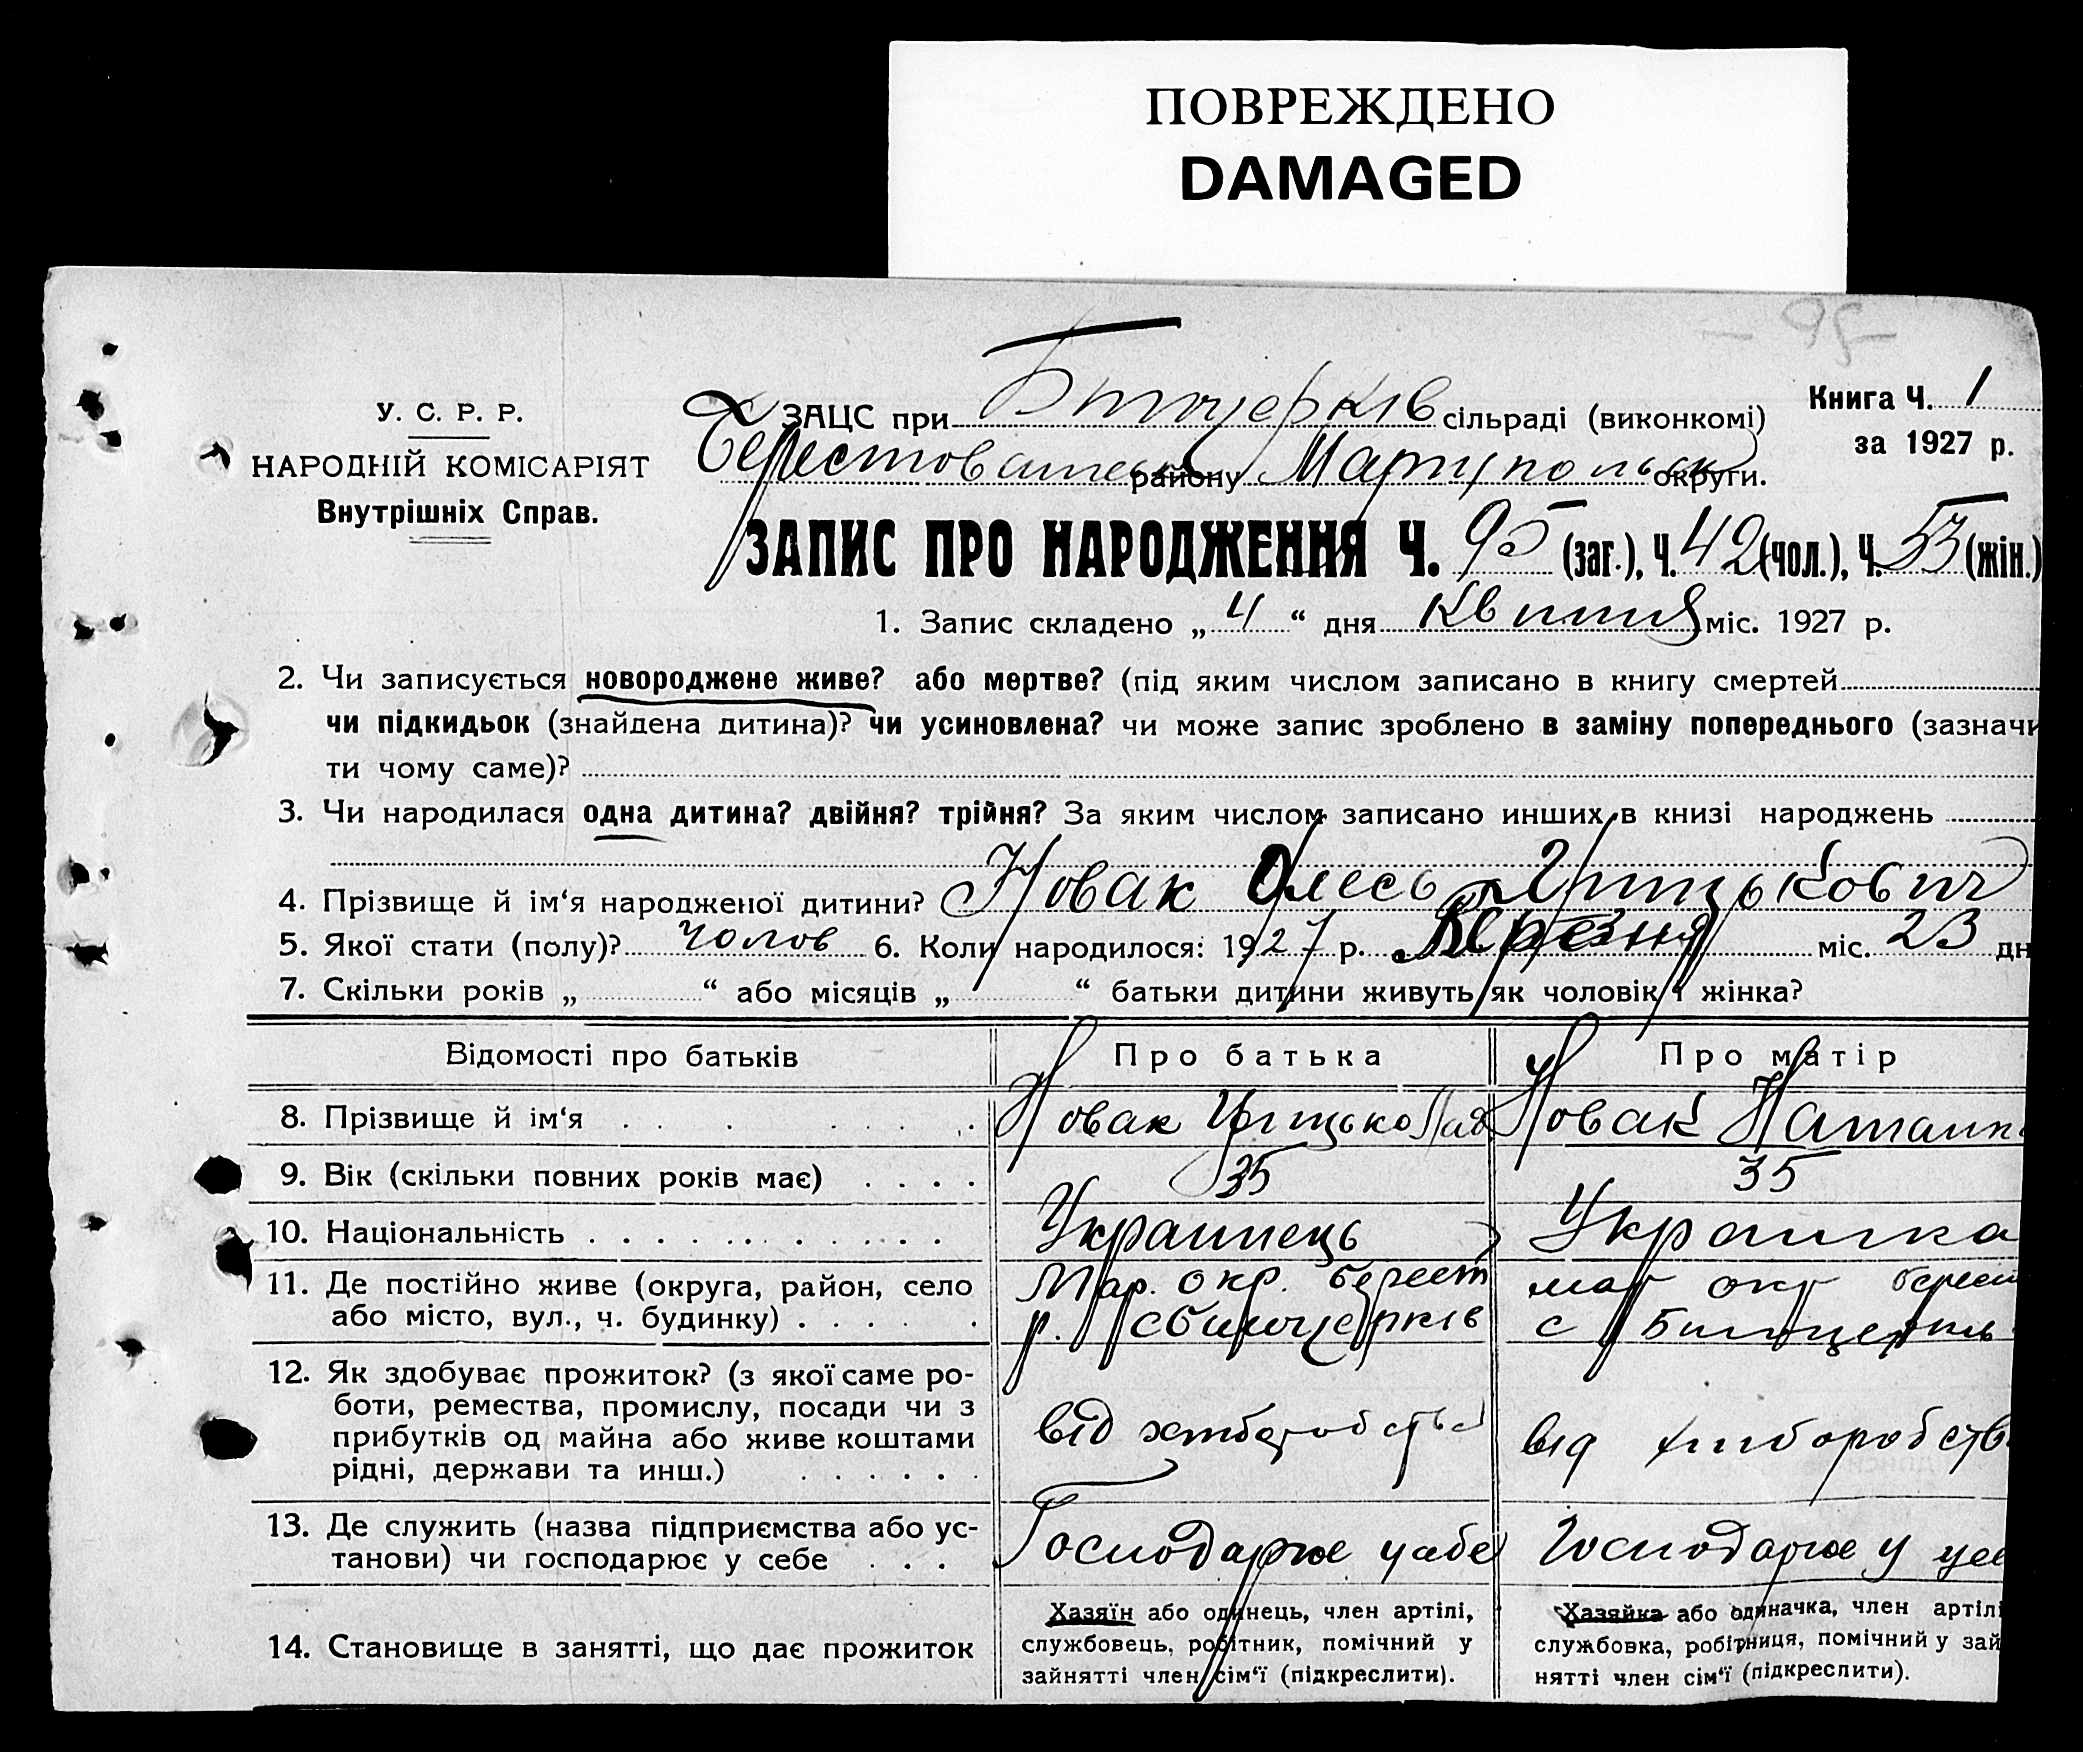 ПОВРЕЖДЕНО
DAMAGED
95
У. С. Р. Р.
НАРОДНІЙ КОМІСАРІЯТ
Внутрішніх Справ.
ЗАЦС при сільраді (виконкомі)
району Маріупольськ округи.
Книга Ч. 1
за 1927 р.
ЗАПИС ПРО НАРОДЖЕННЯ Ч. 95 (заг.), Ч. 42 (чол.), Ч. 53 (жін.)
1. Запис складено „ 4 “ дня Квітня міс. 1927 р.
2. Чи записується новороджене живе? або мертве? (під яким числом записано в книгу смертей
чи підкидьок (знайдена дитина)? чи усиновлена? чи може запис зроблено в заміну попереднього (зазначи
ти чому саме)?
3. Чи народилася одна дитина? двійня? трійня? За яким числом записано инших в книзі народжень
4. Прізвище й ім‘я народженої дитини? Новак Олесь Грицькович
5. Якої стати (полу)? чолов 6. Коли народилося: 1927 р. Березня міс. 23 дн
7. Скільки років „ “ або місяців „ “ батьки дитини живуть як чоловік і жінка?
Відомості про батьків Про батька Про матір
8. Прізвище й ім‘я Новак Грицько Новак
9. Вік (скільки повних років має) 35 35
10. Національність Українець Українка
11. Де постійно живе (округа, район, село Мар. окр. берест мар окр берест
або місто, вул., ч. будинку) р. с
12. Як здобуває прожиток? (з якої саме ро-
боти, ремества, промислу, посади чи з
прибутків од майна або живе коштами від хліборобства від хліборобств
рідні, держави та инш.)
13. Де служить (назва підприємства або ус-
танови) чи господарює у себе Господарює у себе Господарює у
14. Становище в занятті, що дає прожиток
Хазяїн або одинець, член артілі,
службовець, робітник, помічний у
зайнятті член сім‘ї (підкреслити).
Хазяйка або одиначка, член артіл
службовка, робітниця, помічний у зай
нятті член сім‘ї (підкреслити).